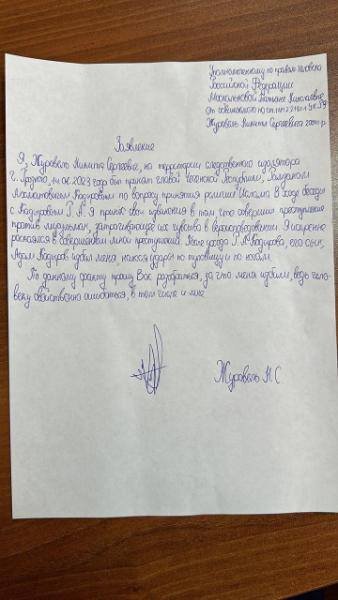 Уполномоченному по правам человека
Российской Федерации
Москальковой Татьяне Николаевне
от обвиняемого по ст.
Журавель Никиты Сергеевича
Заявление
Я, Журавель Никита Сергеевич, на территории следственного изолятора
г. Грозного, 2023 года был принят главой Чеченской Республики, Рамзаном
Ахматовичем Кадыровым по вопросу принятия религии Ислама. В ходе беседы
с Кадыровым Р. А. Я принес свои извинения в том, что совершил преступление
против мусульман, затрагивающее их чувства в вероисповедовании. Я искренне
раскаялся в совершенном мною преступлении. После ухода Р. А. Кадырова, его сын,
Адам Кадыров избил меня, нанося удары по туловищу и по ногам.
По данному факту прошу Вас разобраться, за что меня избили, ведь чело-
веку свойственно ошибаться, в том числе и мне
Журавель Н.С